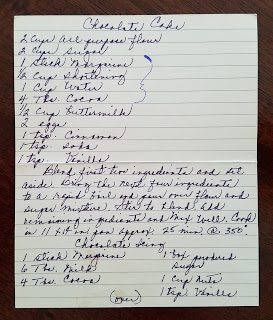 Chocolate Cake
2 Cups all purpose flour
2 Cups Sugar
1 Stick Margerine
1/2 Cup Shortening
1 Cup Water
4 Tbs. Cocoa
1/2 Cup Buttermilk
2 eggs
1 tsp. Cinnamon
1 tsp. Soda
1 tsp Vanilla
Blend first two ingredients and set
aside. Bring the next four ingredients
to a rapid boil and pour over flour and
sugar mixture. Stir to blend add
remaining ingredients and Mix Well. Cook
in 11 X 14 in pan approx 25 min @ 350°.
Chocolate Icing
1 Stick Margerine 1 box powdered
Sugar
6 Tbs. Milk
4 Tbs Cocoa 1 Cup Nuts
1 tsp. Vanilla
(over)